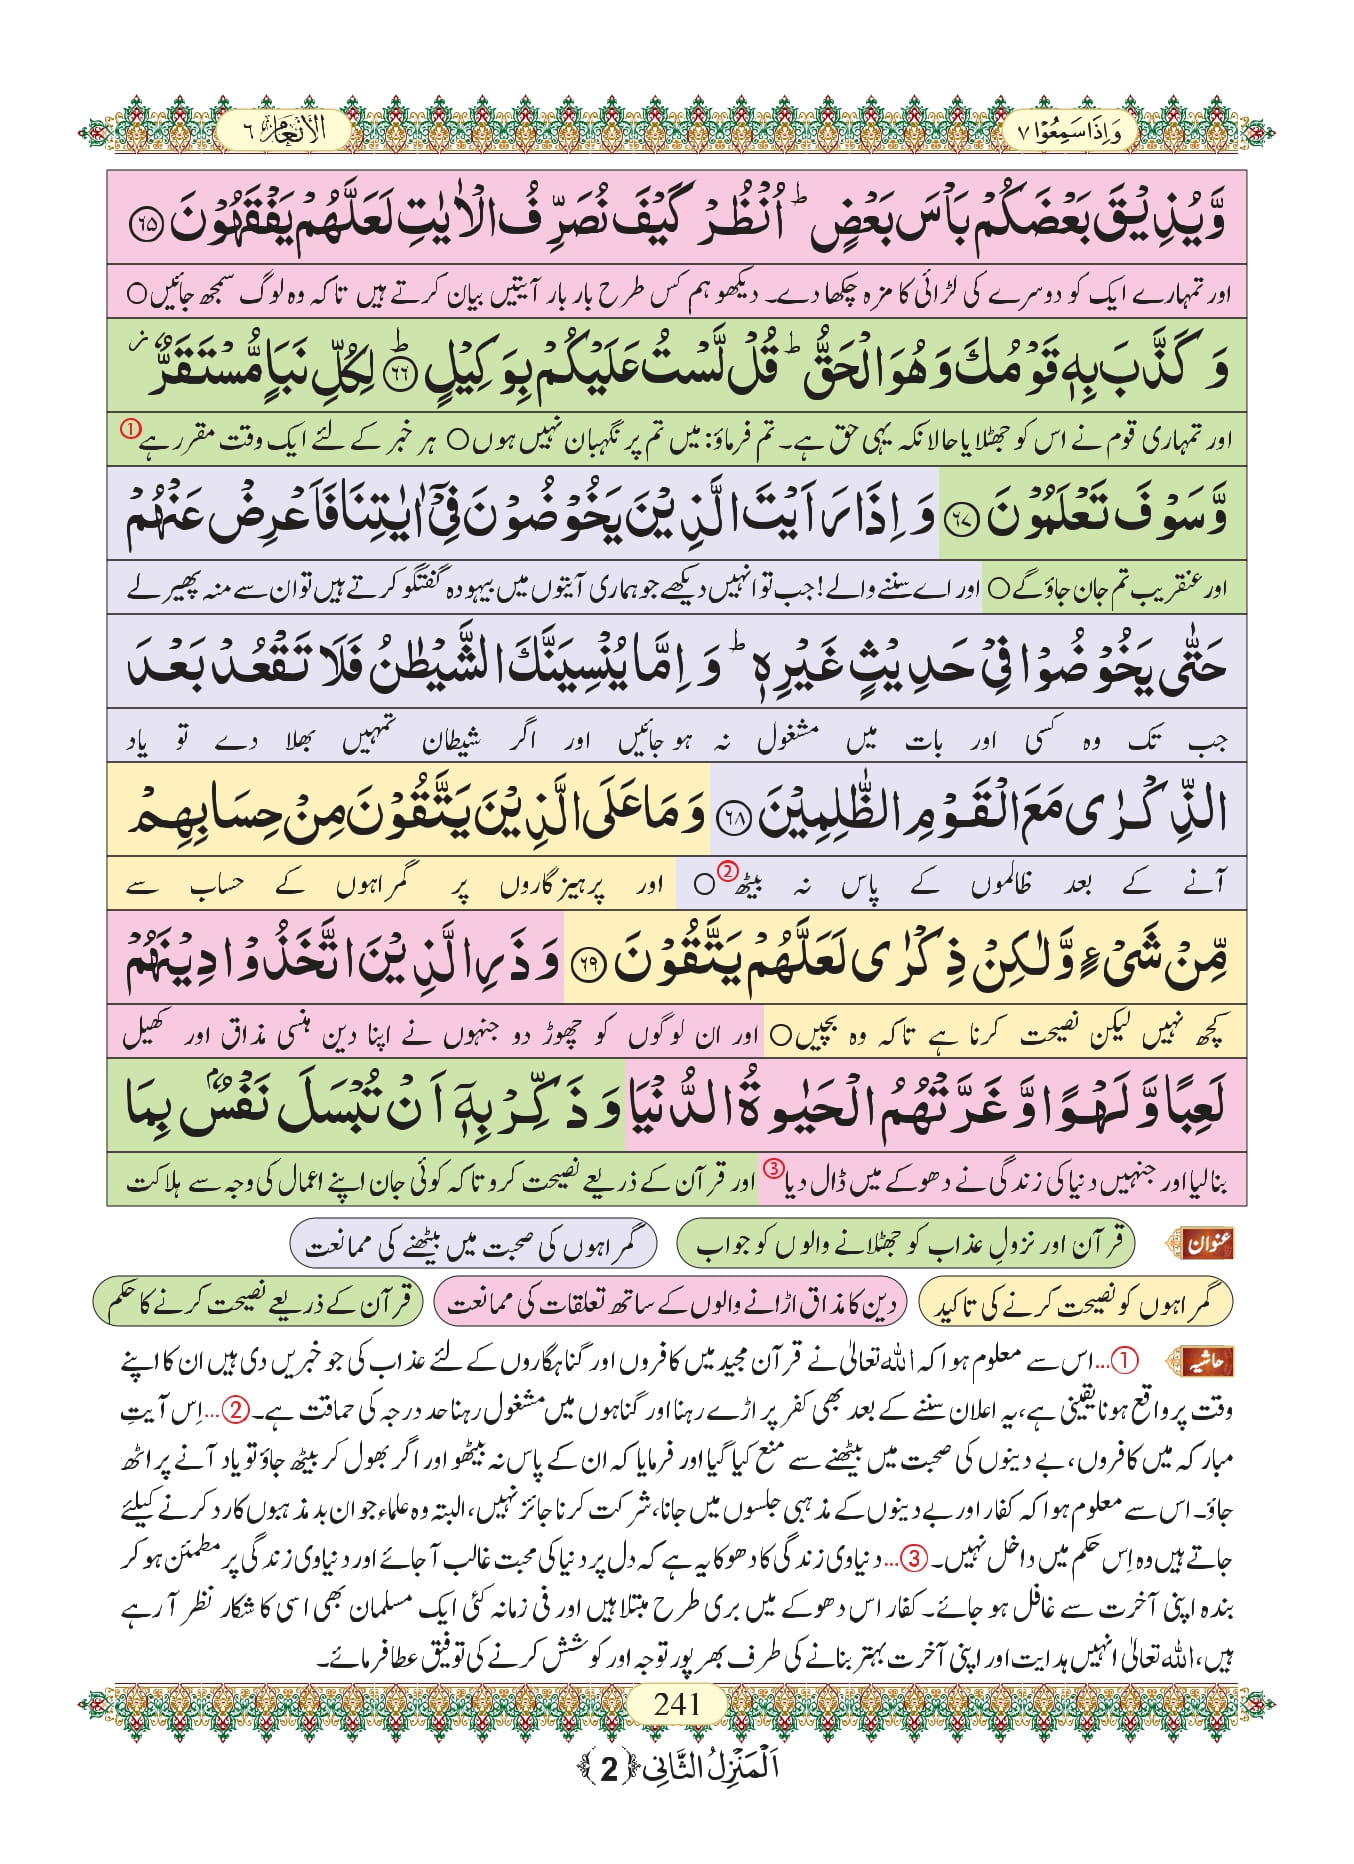 وَاِذَا سَمِعُوْا ۷
الانعام ٦
وَّیُذِیْقَ بَعْضَكُمْ بَاْسَ بَعْضٍ ؕ اُنْظُرْ كَیْفَ نُصَرِّفُ الْاٰیٰتِ لَعَلَّهُمْ یَفْقَهُوْنَ ﴿۶۵﴾
اور تمہارے ایک کو دوسرے کی لڑائی کا مزہ چکھا دے۔ دیکھو ہم کس طرح بار بار آیتیں بیان کرتے ہیں تاکہ وہ لوگ سمجھ جائیں○
وَ كَذَّبَ بِهٖ قَوْمُكَ وَ هُوَ الْحَقُّ ؕ قُلْ لَّسْتُ عَلَیْكُمْ بِوَكِیْلٍ ﴿۶۶﴾ؕ لِكُلِّ نَبَاٍ مُّسْتَقَرٌّ ؗ
اور تمہاری قوم نے اس کو جھٹلایا حالانکہ یہی حق ہے۔ تم فرماؤ: میں تم پر نگہبان نہیں ہوں○ ہر خبر کے لئے ایک وقت مقرر ہے①
وَّ سَوْفَ تَعْلَمُوْنَ ﴿۶۷﴾ وَ اِذَا رَاَیْتَ الَّذِیْنَ یَخُوْضُوْنَ فِیْۤ اٰیٰتِنَا فَاَعْرِضْ عَنْهُمْ
اور عنقریب تم جان جاؤ گے○ اور اے سننے والے! جب تو انہیں دیکھے جو ہماری آیتوں میں بیہودہ گفتگو کرتے ہیں تو ان سے منہ پھیر لے
حَتّٰی یَخُوْضُوْا فِیْ حَدِیْثٍ غَیْرِهٖ ؕ وَ اِمَّا یُنْسِیَنَّكَ الشَّیْطٰنُ فَلَا تَقْعُدْ بَعْدَ
جب تک وہ کسی اور بات میں مشغول نہ ہو جائیں اور اگر شیطان تمہیں بھلا دے تو یاد
الذِّكْرٰی مَعَ الْقَوْمِ الظّٰلِمِیْنَ ﴿۶۸﴾ وَ مَا عَلَی الَّذِیْنَ یَتَّقُوْنَ مِنْ حِسَابِهِمْ
آنے کے بعد ظالموں کے پاس نہ بیٹھ②○ اور پرہیزگاروں پر گمراہوں کے حساب سے
مِّنْ شَیْءٍ وَّ لٰكِنْ ذِكْرٰی لَعَلَّهُمْ یَتَّقُوْنَ ﴿۶۹﴾ وَ ذَرِ الَّذِیْنَ اتَّخَذُوْا دِیْنَهُمْ
کچھ نہیں لیکن نصیحت کرنا ہے تاکہ وہ بچیں○ اور ان لوگوں کو چھوڑ دو جنہوں نے اپنا دین ہنسی مذاق اور کھیل
لَعِبًا وَّ لَهْوًا وَّ غَرَّتْهُمُ الْحَیٰوةُ الدُّنْیَا وَ ذَكِّرْ بِهٖۤ اَنْ تُبْسَلَ نَفْسٌۢ بِمَا
بنالیا اور جنہیں دنیا کی زندگی نے دھوکے میں ڈال دیا③ اور قرآن کے ذریعے نصیحت کرو تاکہ کوئی جان اپنے اعمال کی وجہ سے ہلاکت
عنوان قرآن اور نزولِ عذاب کو جھٹلانے والوں کو جواب گمراہوں کی صحبت میں بیٹھنے کی ممانعت
گمراہوں کو نصیحت کرنے کی تاکید دین کا مذاق اڑانے والوں کے ساتھ تعلقات کی ممانعت قرآن کے ذریعے نصیحت کرنے کا حکم
حاشیہ ①...اس سے معلوم ہوا کہ اللہ تعالیٰ نے قرآن مجید میں کافروں اور گناہگاروں کے لئے عذاب کی جو خبریں دی ہیں ان کا اپنے
وقت پر واقع ہونا یقینی ہے، یہ اعلان سننے کے بعد بھی کفر پر اڑے رہنا اور گناہوں میں مشغول رہنا حد درجہ کی حماقت ہے۔ ②...اِس آیتِ
مبارکہ میں کافروں، بے دینوں کی صحبت میں بیٹھنے سے منع کیا گیا اور فرمایا کہ ان کے پاس نہ بیٹھو اور اگر بھول کر بیٹھ جاؤ تو یاد آنے پر اٹھ
جاؤ۔ اس سے معلوم ہوا کہ کفار اور بے دینوں کے مذہبی جلسوں میں جانا، شرکت کرنا جائز نہیں، البتہ وہ علماء جو ان بدمذہبوں کا رد کرنے کیلئے
جاتے ہیں وہ اِس حکم میں داخل نہیں۔ ③...دنیاوی زندگی کا دھوکا یہ ہے کہ دل پر دنیا کی محبت غالب آجائے اور دنیاوی زندگی پر مطمئن ہو کر
بندہ اپنی آخرت سے غافل ہو جائے۔ کفار اس دھوکے میں بری طرح مبتلا ہیں اور فی زمانہ کئی ایک مسلمان بھی اسی کا شکار نظر آرہے
ہیں، اللہ تعالیٰ انہیں ہدایت اور اپنی آخرت بہتر بنانے کی طرف بھرپور توجہ اور کوشش کرنے کی توفیق عطا فرمائے۔
241
اَلْمَنْزِلُ الثَّانِی ﴿2﴾